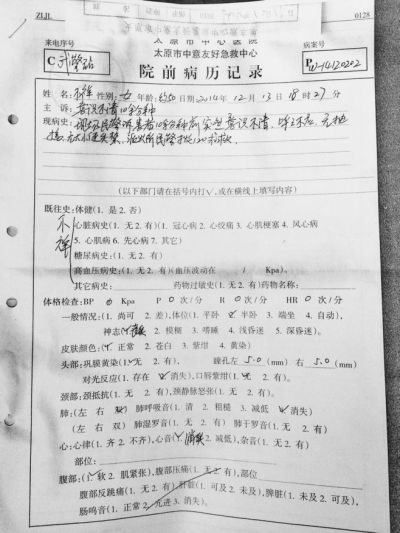 ZLJL 0128
太原市中心医院
来电序号 太原市中意友好急救中心 病案号
院前病历记录
姓名:不祥 性别:女 年龄:约50 日期2014年12月13日18时27分
主诉:意识不清10余分种
现病史:
(以下部门请在括号内打√,或在横线上填写内容)
既往史:体健(1.是2.否)
不祥
心脏病史(1.无2.有)(1.冠心病 2.心绞痛 3.心肌梗塞 4.风心病
5.心肌病 6.先心病 7.其它)
糖尿病史:(1.无2.有)
高血压病史:(1.无2.有)(血压波动在 / Kpa)。
其它病史: 药物过敏史(1.无2.有)药物名称:
体格检查:BP 0 Kpa P 0 次/分 R 0 次/分 HR 0 次/分
一般情况:(1.尚可 2.差),体位(1.平卧 2.半卧 3.端坐 4.自动),
神志(1. 2.模糊 3.嗜睡 4.浅昏迷 5.深昏迷)。
皮肤颜色:(1.正常 2.苍白 3.紫绀 4.黄染)
头部:巩膜黄染(1.无 2.有), 瞳孔左 5.0 (mm) 右 5.0 (mm)
对光反应(1.存在 2.消失),口唇紫绀(1.无 2.有)。
颈部:颈抵抗(1.无2.有),颈静脉怒张(1.无2.有)。
肺:(左 右 双) 肺呼吸音(1.清 2.粗糙 3.减低 4.消失)
(左 右 双) 肺湿罗音(1.无2.有) 肺干罗音(1.无2.有)
心:心律(1.齐2.不齐),心音( 消失 2.减低),杂音(1.无2.有)
部位:
腹部:(1.软2.肌紧张),腹部压痛(1.无2.有),部位
腹部反跳痛(1.无2.有),肝脏(1.未及2.可及),脾脏(1.未及2.可及),
肠鸣音(1.正常2.亢进3.消失)。